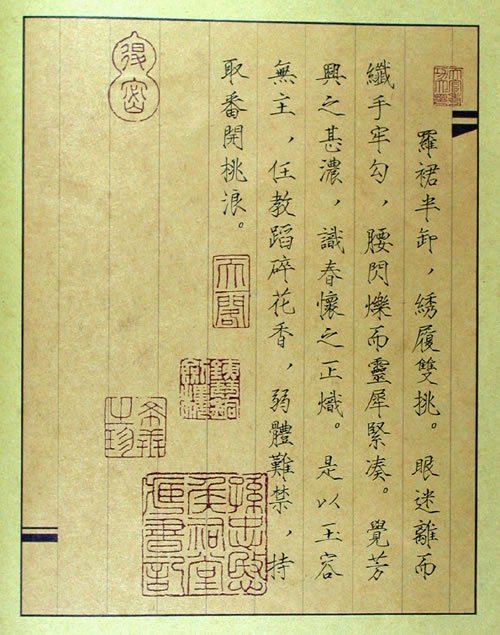 羅裙半卸，綉履雙挑。眼迷離而
纖手牢勾，腰閃爍而靈犀緊凑。覺芳
興之甚濃，識春懷之正熾。是以玉容
無主，任教蹈碎花香，弱體難禁，持
取番開桃浪。
孫忠愍
侯祠堂
藏書記